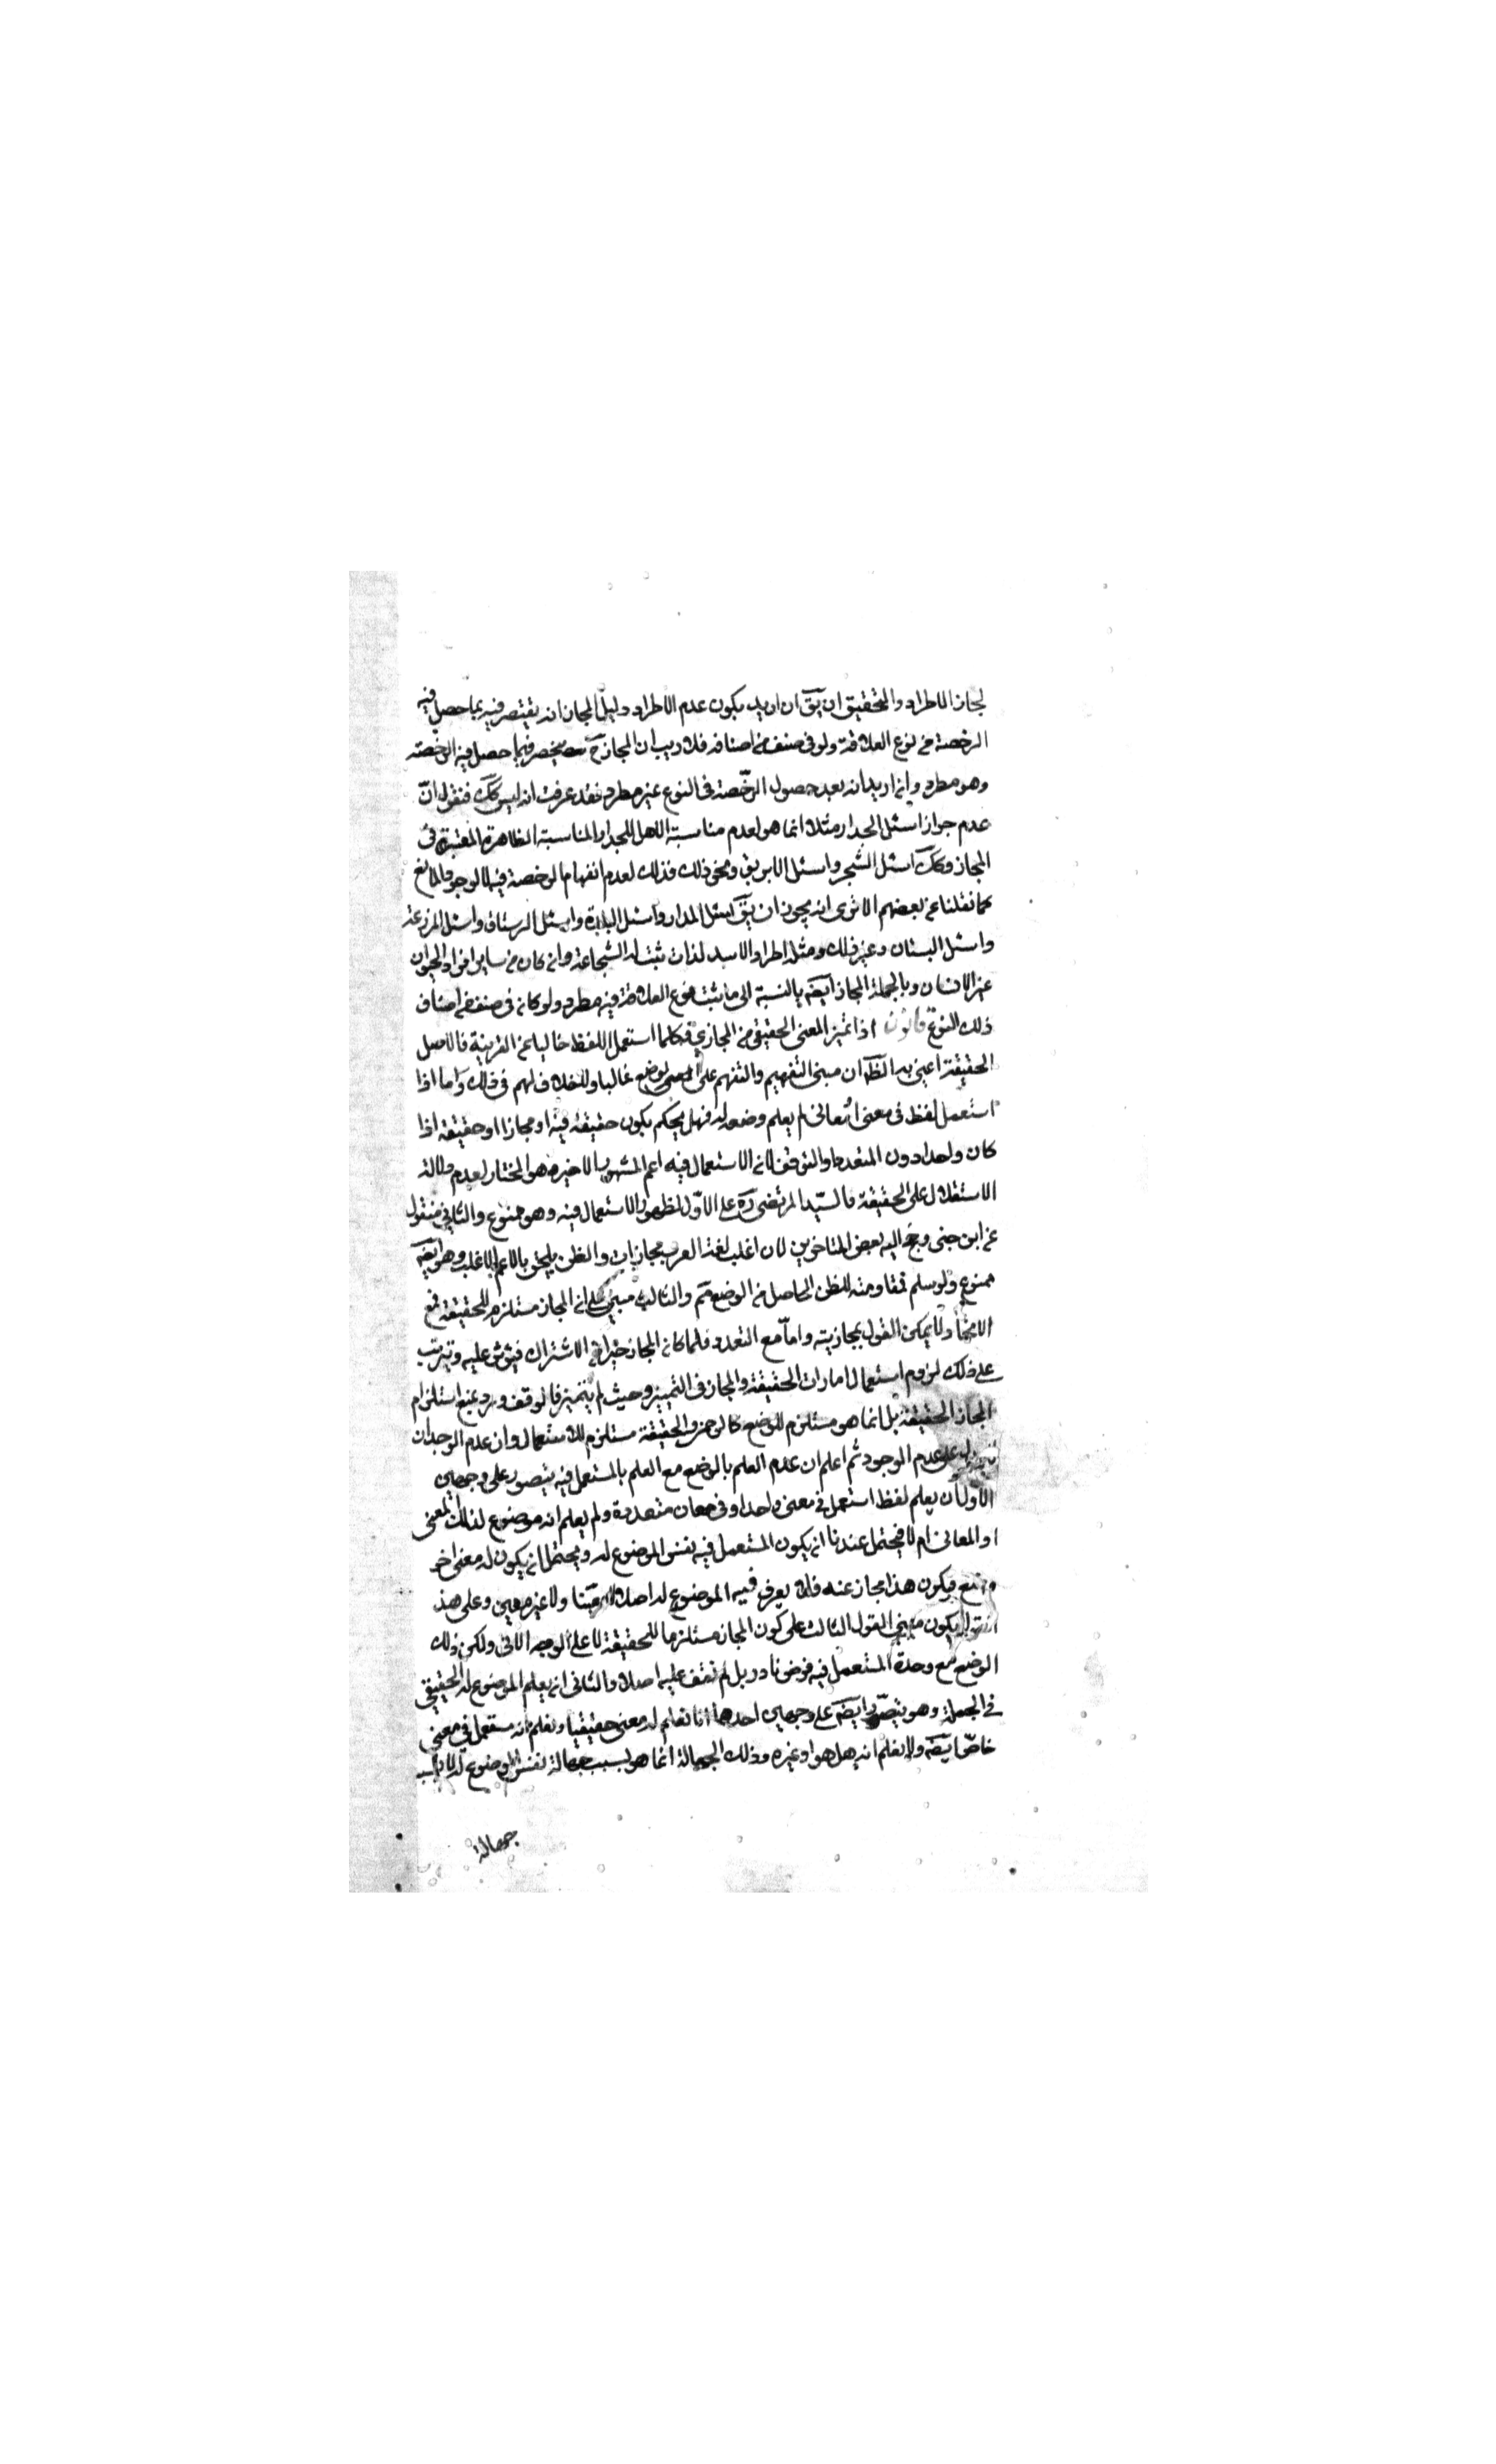 لجاز الاطراد والتحقيق ان يقَ ان اريد بكون عدم الاطراد دليل المجاز انه يقتصر فيه بما حصل فيه
الرخصة من نوع العلاقة ولو في صنف من اصنافه فلا ريب ان المجاز حَ ينحصر فيما حصل فيه الرخصة
وهو مطرد وان اريد انه بعد حصول الرخّصة في النوع غير مطرد فقد عرفت انه ليس ككَ فنقول انّ
عدم جواز اسئل الجدار مثلا انما هو لعدم مناسبة الاهل للجدار المناسبة الظاهرة المعتبرة في
المجاز وككَ اسئل الشجر واسئل الابريق ونحو ذلك فذلك لعدم انفهام الرخصة فيها لا لوجود المانع
كما نقلنا عن بعضهم الا ترى انه يجوز ان يقَ اسئل الدار واسئل البلدة واسئل الرستاق واسئل المزرعة
واسئل البستان وغير ذلك ومثله اطراد الاسد لذات ثبت له الشجاعة وان كان من ساير افراد الحيوان
غير الانسان وبالجملة المجاز ايضَه بالنسبة الى ما ثبت نوع العلاقة فيه مطرد ولو كان في صنف من اصناف
ذلك النوع قانون اذا تميز المعنى الحقيقي من المجازي فكلما استعمل اللفظ خاليا عن القرينة فالاصل
الحقيقة اعني به الظَه ان مبنى التفهيم والتفهم على الوضع غالبا ولا خلاف لهم في ذلك واما اذا
استعمل لفظ في معنى او معانى لم يعلم وضعه له فهل يحكم بكون حقيقة فيه او مجازا او حقيقة اذا
كان واحدا دون المتعدد او التوقف لان الاستعمال فيه اعم المشهور الاخير وهو المختار لعدم دلالة
الاستعمال على الحقيقة والسيّد المرتضى رَه على الاوّل لظهور الاستعمال فيه وهو ممنوع والثاني منقول
عن ابن جنى وجنح اليه بعض المتاخرين لان اغلب لغة العرب مجازات والظن يلحق بالاعم الاغلب وهو ايضَه
ممنوع ولو سلم فمقاومته للظن الحاصل من الوضع مَم والثالث مبني على ان المجاز مستلزم للحقيقة فمع
الاتحاد لا يمكن القول بمجازيته واما مع التعدد فلما كان المجاز خيرا من الاشتراك فيؤثر عليه ويترتب
على ذلك لزوم استعمال امارات الحقيقة والمجاز في التمييز وحيث لم يتميز فالوقف ويرد عنع استلزام
المجاز للحقيقة بل انما هو مستلزم للوضع كالرحمن والحقيقة مستلزم للاستعمال وان عدم الوجدان
لا يدل على عدم الوجود ثم اعلم ان عدم العلم بالوضع مع العلم بالمستعمل فيه يتصور على وجهين
الاول ان يعلم لفظ استعمل في معنى واحد او في معان متعددة ولم يعلم انه موضوع لذلك المعنى
او المعانى ام لا فيحتمل عندنا ان يكون المستعمل فيه نفس الموضوع له ويحتمل ان يكون له معنى اخر
وضع ويكون هذا مجاز عنه فلا يعرف فيه الموضوع له اصلا لا معينا ولا غير معين وعلى هذ
فيكون مبنى القول الثالث على كون المجاز مستلزما للحقيقة لا على الوجه الاتى ولكن ذلك
الوضع مع وحدة المستعمل فيه فرض نادر بل لم نقف عليه اصلا والثانى ان يعلم الموضوع له الحقيقي
في الجملة وهو يتصوّر ايضَه على وجهين احدهما انا نعلم له معنى حقيقيا ونعلم انه مستعمل في معنى
خاصّ ايضَه ولا نعلم انه هل هو او غيره وذلك الجهالة انما هو بسبب جهالة نفس الموضوع له لا بسبب
جهالة